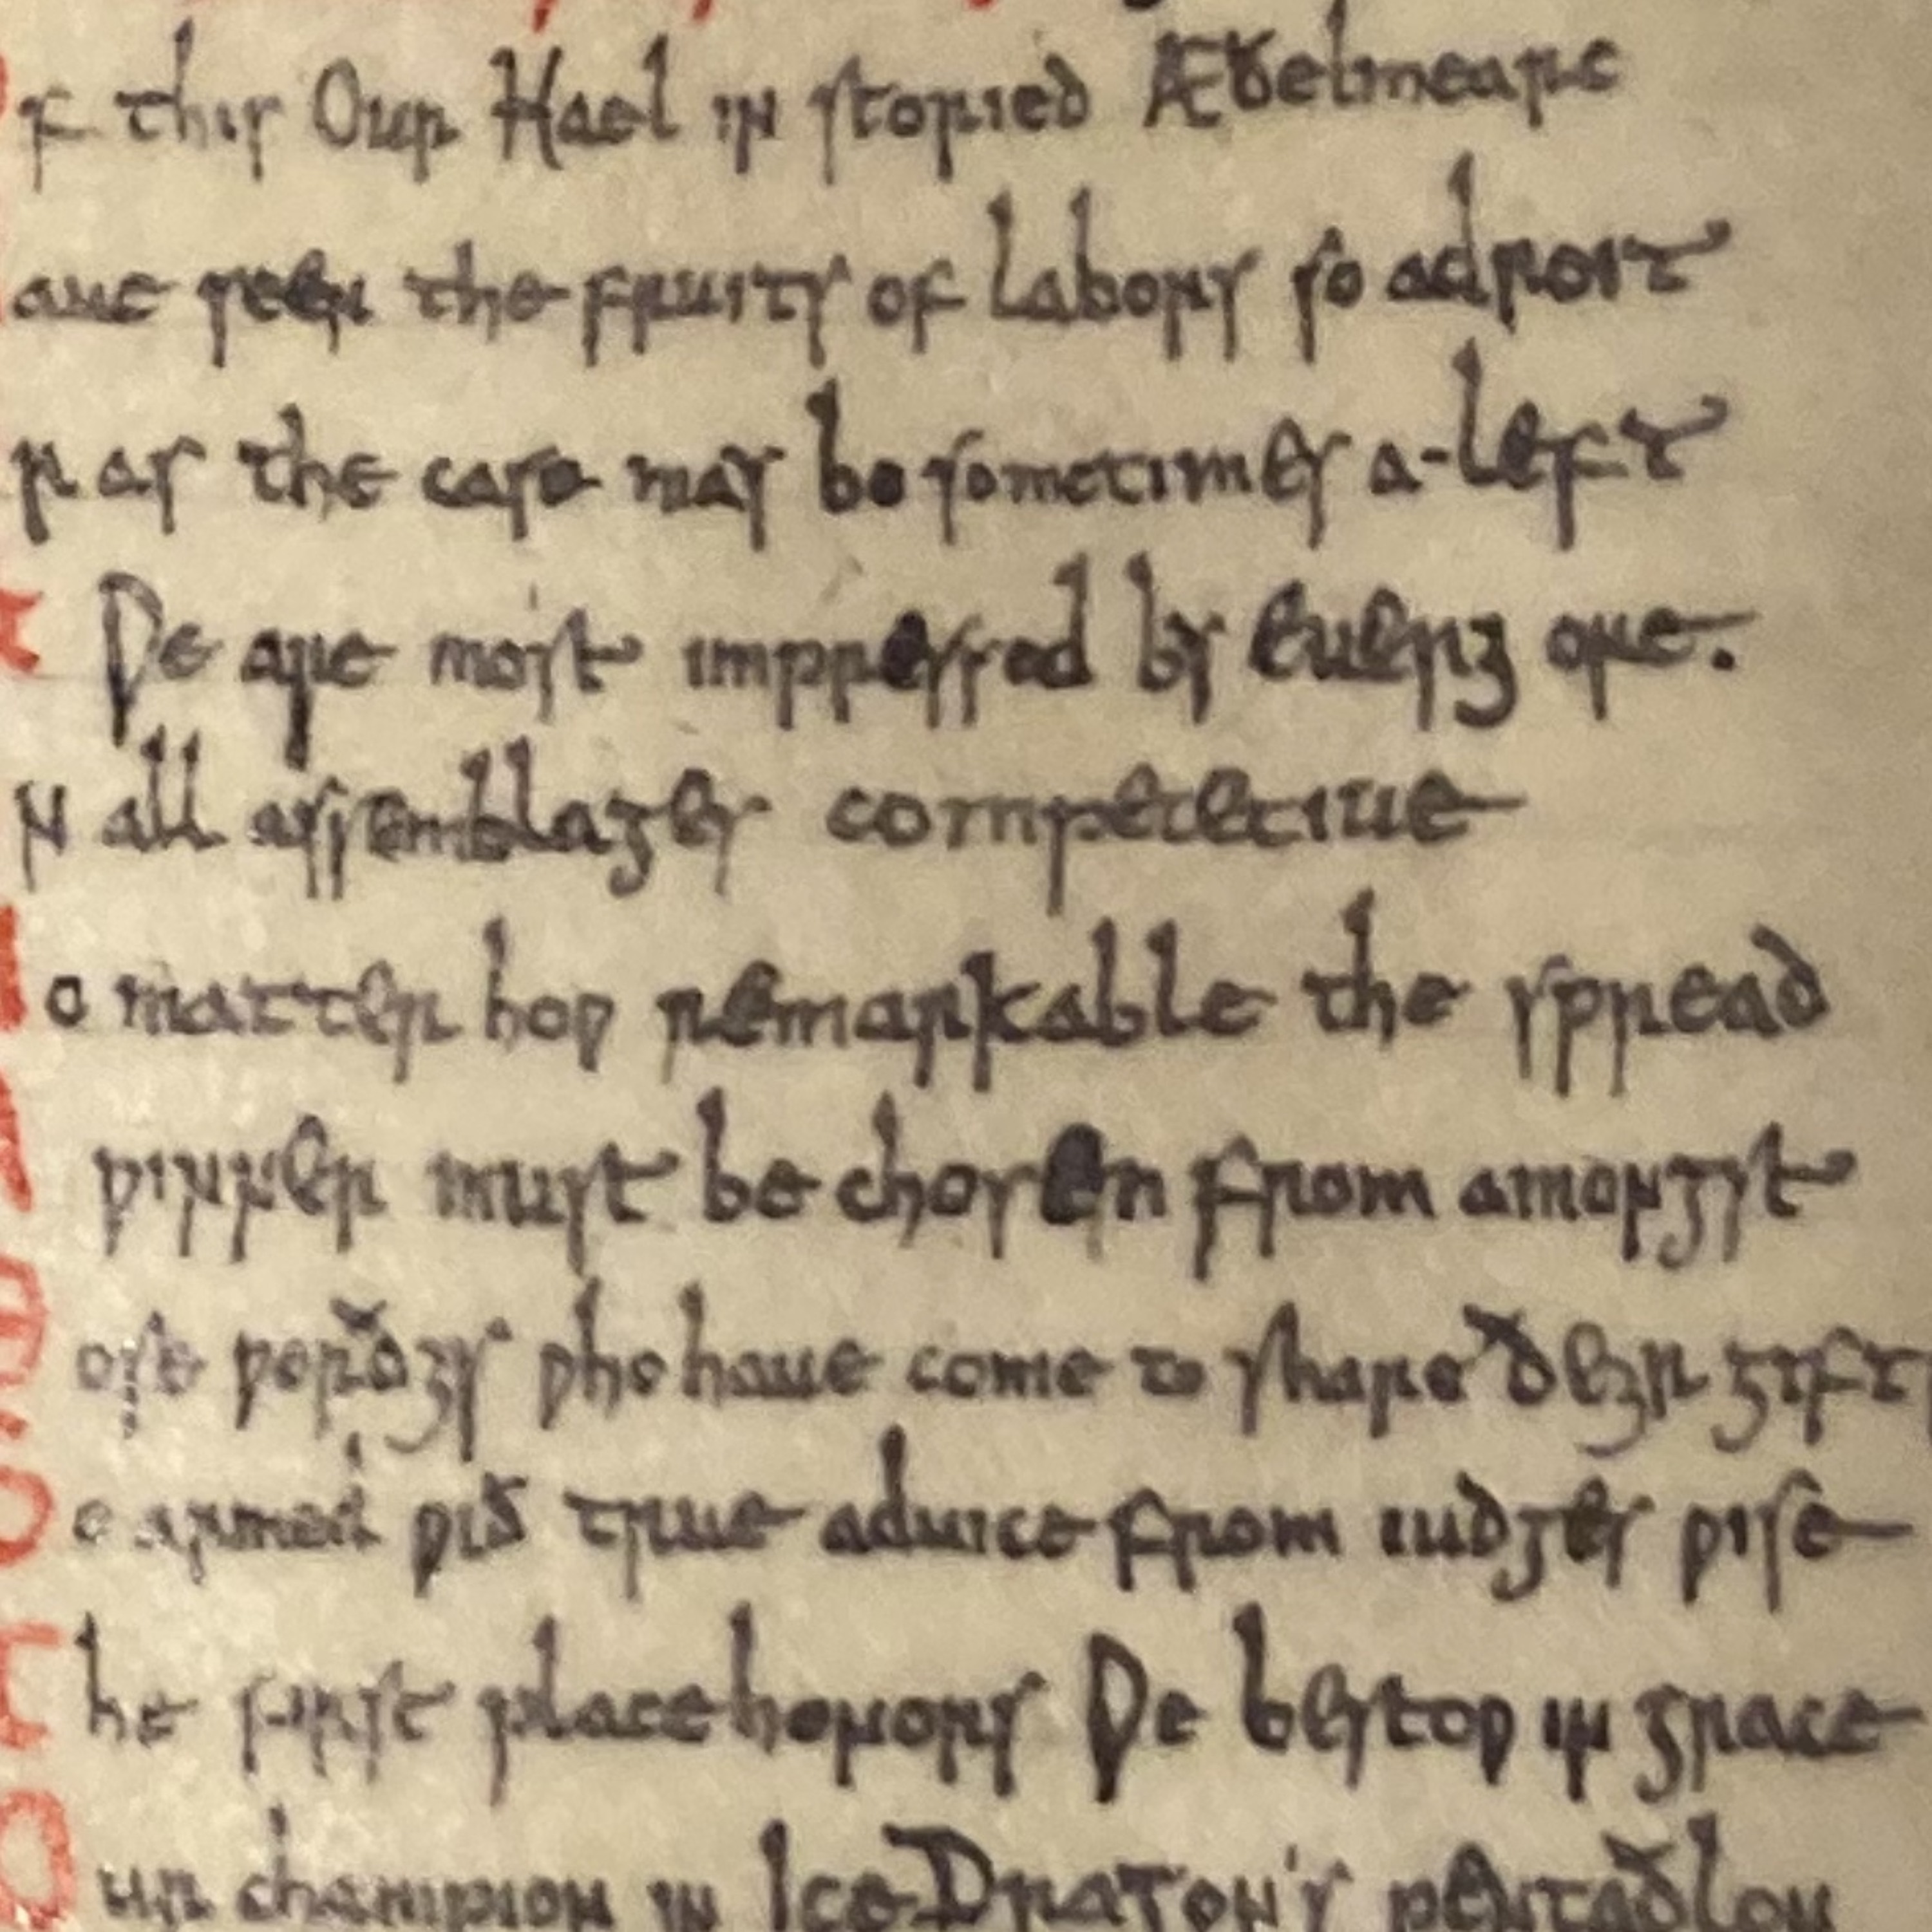 f this Our Hael in storied Æðelmearc
aue seen the fruits of labors so adroit
r as the case may be sometimes a-left
Ƿe are most impressed by euerȝ one.
n all assemblages competetiue
o matter hoƿ remarkable the spread
ƿinner must be chosen from amongst
ose ƿorðȝs ƿho haue come to share ðeȝr gift
e armed ƿið true aduice from iudges ƿise
he first place honors Ƿe bestoƿ in grace
ur champion in Ice Dragon's pentaðlon